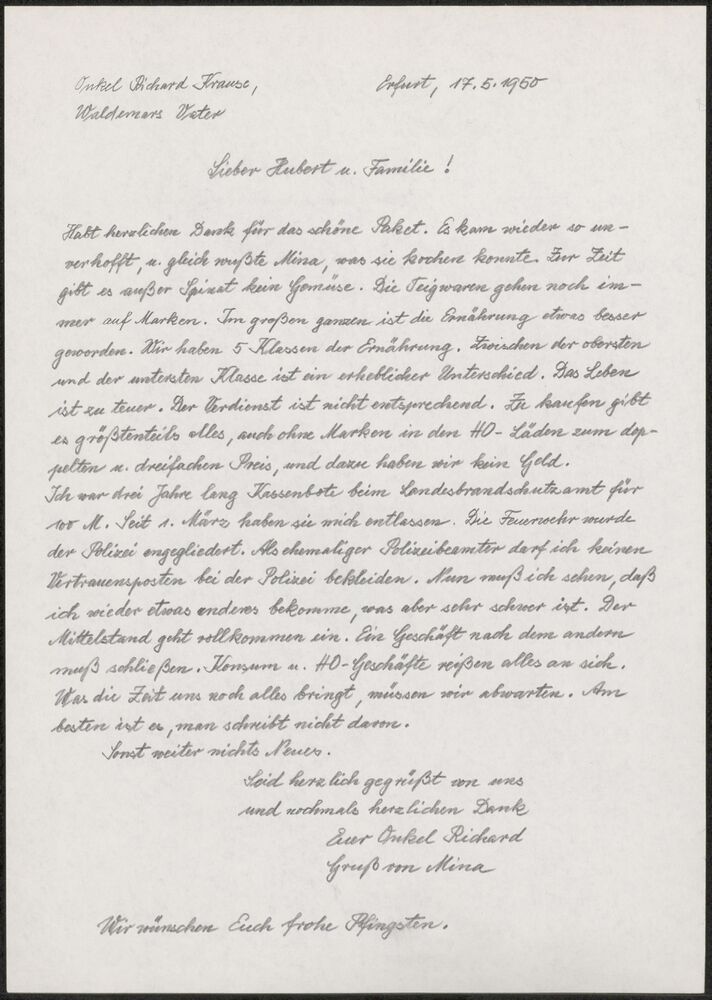 Onkel Richard Krause,
Erfurt, 17.5.1950
Waldemars Vater
Lieber Hubert u. Familie!
Habt herzlichen Dank für das schöne Paket. Es kam wieder so un-
verhofft, u. gleich wußte Mina, was sie kochen konnte. Zur Zeit
gibt es außer Spinat kein Gemüse. Die Teigwaren gehen noch im-
mer auf Marken. Im großen ganzen ist die Ernährung etwas besser
geworden. Wir haben 5 Klassen der Ernährung. Zwischen der obersten
und der untersten Klasse ist ein erheblicher Unterschied. Das Leben
ist zu teuer. Der Verdienst ist nicht entsprechend. Zu kaufen gibt
es größtenteils alles, auch ohne Marken in den HO-Läden zum dop-
pelten u. dreifachen Preis, und dazu haben wir kein Geld.
Ich war drei Jahre lang Kassenbote beim Landesbrandschutzamt für
100 M. Seit 1. März haben sie mich entlassen. Die Feuerwehr wurde
der Polizei engegliedert. Als ehemaliger Polizeibeamter darf ich keinen
Vertrauensposten bei der Polizei bekleiden. Nun muß ich sehen, daß
ich wieder etwas anderes bekomme, was aber sehr schwer ist. Der
Mittelstand geht vollkommen ein. Ein Geschäft nach dem andern
muß schließen. Konsum u. HO-Geschäfte reißen alles an sich.
Was die Zeit uns noch alles bringt, müssen wir abwarten. Am
besten ist es, man schreibt nicht davon.
Sonst weiter nichts Neues.
Seid herzlich gegrüßt von uns
und nochmals herzlichen Dank
Euer Onkel Richard
Gruß von Mina
Wir wünschen Euch frohe Pfingsten.